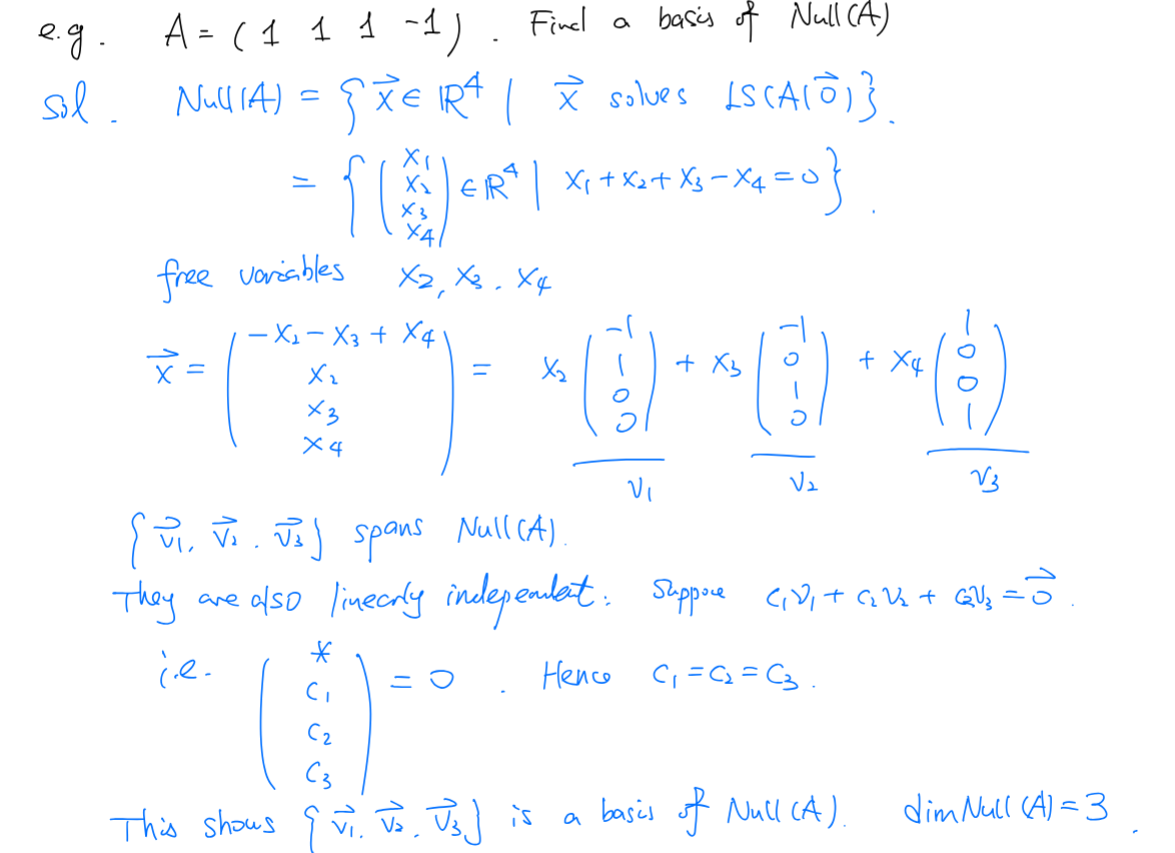 e.g. A = ( 1 1 1 -1 ). Find a basis of Null(A)
Sol. Null(A) = { x⃗ ∈ ℝ⁴ | x⃗ solves LS(A|0⃗) }.
= { (x₁ x₂ x₃ x₄) ∈ ℝ⁴ | x₁ + x₂ + x₃ - x₄ = 0 }.
free variables x₂, x₃, x₄
x⃗ = (-x₂ - x₃ + x₄ x₂ x₃ x₄) = x₂ (-1 1 0 0) + x₃ (-1 0 1 0) + x₄ (1 0 0 1)
v₁ v₂ v₃
{ v⃗₁, v⃗₂, v⃗₃ } spans Null(A).
They are also linearly independent: Suppose c₁v₁ + c₂v₂ + c₃v₃ = 0⃗.
i.e. (* c₁ c₂ c₃) = 0. Hence c₁ = c₂ = c₃.
This shows { v⃗₁, v⃗₂, v⃗₃ } is a basis of Null(A). dim Null(A) = 3.